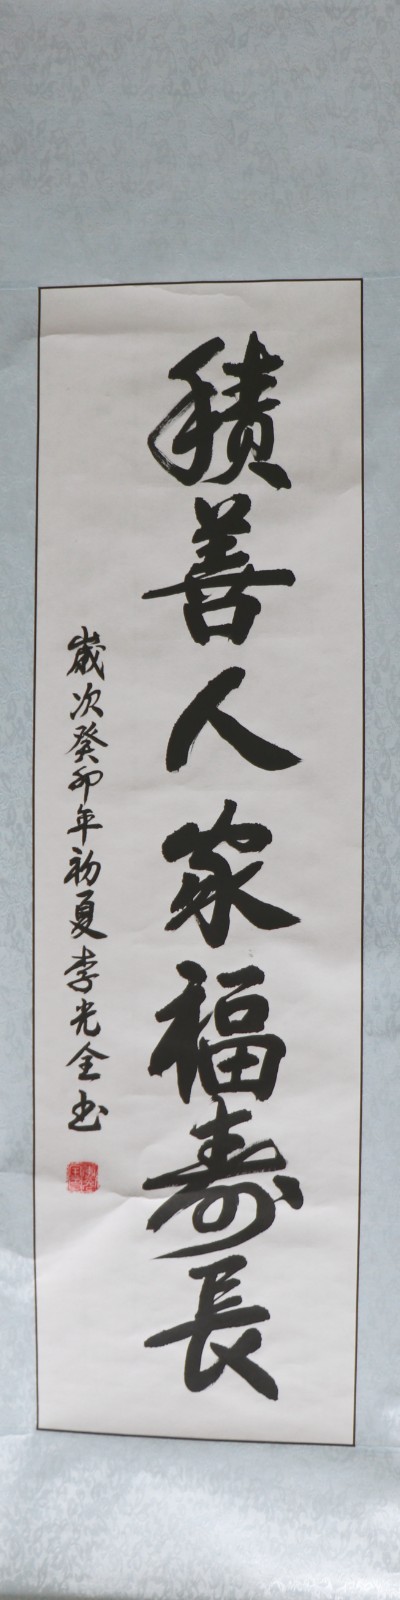 積善人家福寿長
歲次癸卯年初夏李光全书